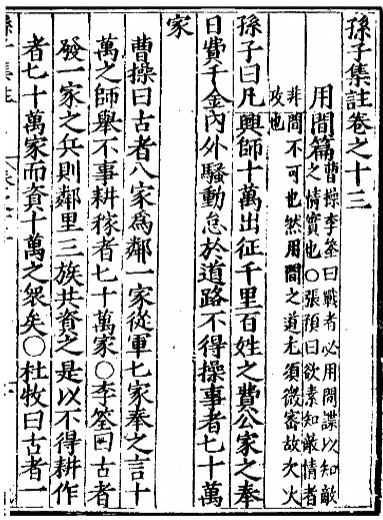 孫子集註卷之十三
用間篇
曹操李筌曰戰者必用間諜以知敵
之情實也○張預曰欲素知敵情者
非間不可也然用間之道尤須微密故次火
攻也
孫子曰凡興師十萬出征千里百姓之費公家之奉
日費千金內外騷動怠於道路不得操事者七十萬
家
曹操曰古者八家為鄰一家從軍七家奉之言十
萬之師舉不事耕稼者七十萬家○李筌曰古者
發一家之兵則鄰里三族共資之是以不得耕作
者七十萬家而資十萬之衆矣○杜牧曰古者一
孫子集註